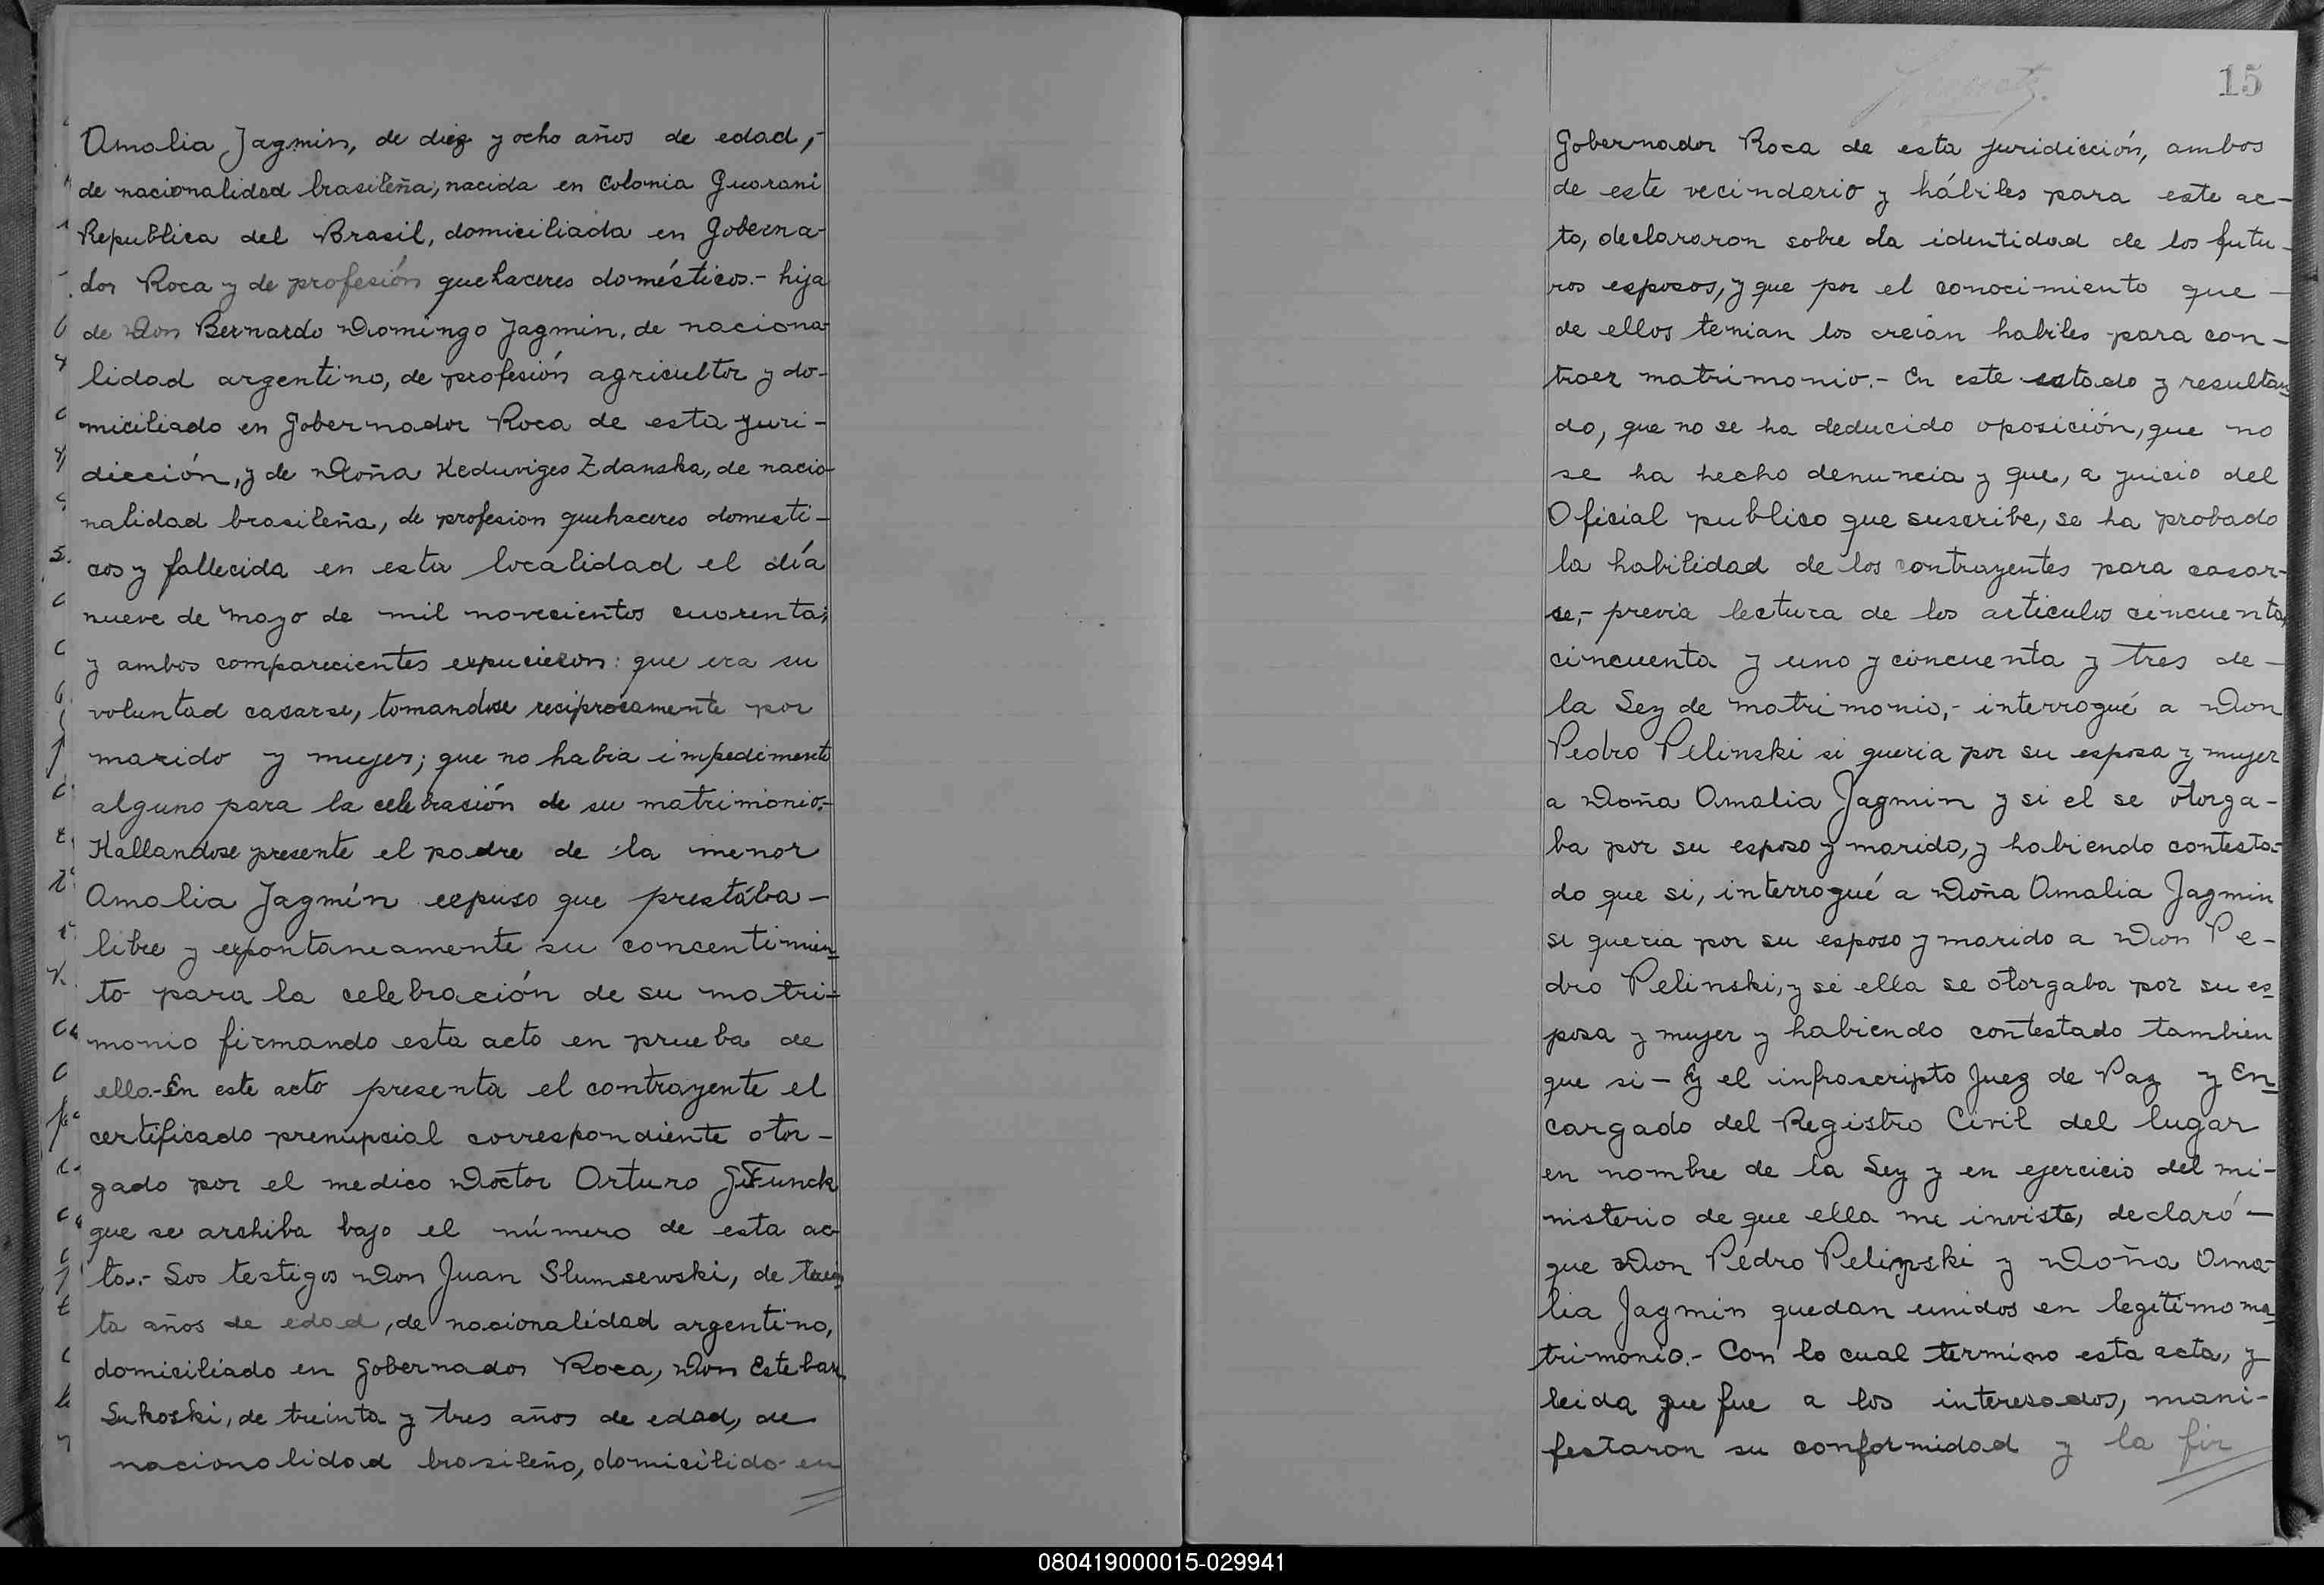 Amalia Jagmin, de diez y ocho años de edad,-
de nacionalidad brasileña, nacida en Colonia Guarani
Republica del Brasil, domiciliada en Goberna-
dor Roca y de profesión quehaceres domésticos.- hija
de Don Bernardo Domingo Jagmin, de naciona-
lidad argentino, de profesión agricultor y do-
miciliado en Gobernador Roca de esta juri-
dicción, y de Doña Heduviges Zdanska, de nacio-
nalidad brasileña, de profesion quehaceres domesti-
cos y fallecida en esta localidad el día
nueve de mayo de mil novecientos cuarenta;
y ambos comparecientes expucieron: que era su
voluntad casarse, tomandose reciprocamente por
marido y mujer; que no habia impedimento
alguno para la celebrasión de su matrimonio.-
Hallandose presente el padre de la menor
Amalia Jagmín expuso que prestába-
libre y expontaneamente su concentimien-
to para la celebración de su matri-
monio firmando esta acto en prueba de
ello.- En este acto presenta el contrayente el
certificado prenupcial correspondiente otor-
gado por el medico Doctor Arturo Funck
que se archiba bajo el número de esta ac-
ta.- Los testigos Don Juan Slumsewski, de trein
ta años de edad, de nacionalidad argentino,
domiciliado en Gobernador Roca, Don Esteban
Sukoski, de treinta y tres años de edad, de
nacionalidad brasileño, domicilido en
15
Gobernador Roca de esta juridicción, ambos
de este vecindario y hábiles para este ac-
to, declararon sobre la identidad de los futu-
ros esposos, y que por el conocimiento que -
de ellos tenian los creían habiles para con-
traer matrimonio.- En este estado y resultan
do, que no se ha deducido oposición, que no
se ha hecho denuncia y que, a juicio del
Oficial publico que suscribe, se ha probado
la habilidad de los contrayentes para casar-
se,- previa lectura de los articulos cincuenta,
cincuenta y uno y cincuenta y tres de -
la Ley de matrimonio,- interrogué a Don
Pedro Pelinski si queria por su esposa y mujer
a Doña Amalia Jagmin y si el se otorga-
ba por su esposo y marido, y habiendo contesta-
do que si, interrogué a Doña Amalia Jagmin
si queria por su esposo y marido a Don Pe-
dro Pelinski, y si ella se otorgaba por su es
posa y mujer y habiendo contestado tambien
que si - Ey el infrascripto Juez de Paz y En
cargado del Registro Civil del lugar
en nombre de la Ley y en ejercicio del mi-
nisterio de que ella me inviste, declaró -
que Don Pedro Pelinski y Doña Ama-
lia Jagmin quedan unidos en legitimo ma
trimonio.- Con lo cual termino esta acta, y
leida que fue a los interesados, mani-
festaron su conformidad y la fir
080419000015-029941